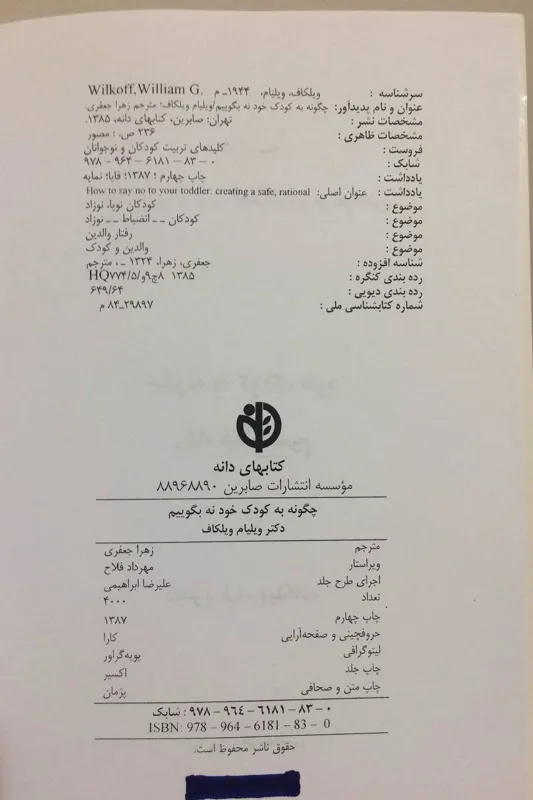 سرشناسه : ویلکاف، ویلیام، ۱۹۴۴ـ م Wilkoff, William G.
عنوان و نام پدیدآور: چگونه به کودک خود نه بگوییم/ویلیام ویلکاف؛ مترجم زهرا جعفری.
مشخصات نشر : تهران: صابرین، کتابهای دانه، ۱۳۸۵.
مشخصات ظاهری : ۲۳۶ ص.: مصور
فروست : کلیدهای تربیت کودکان و نوجوانان
شابک : ۹۷۸ – ۹۶۴ – ۶۱۸۱ – ۸۳ – ۰
یادداشت : چاپ چهارم ؛ ۱۳۸۷؛ فاپا؛ نمایه
یادداشت : عنوان اصلی: How to say no to your toddler: creating a safe, rational
موضوع : کودکان نوپا، نوزاد
موضوع : کودکان ــ انضباط ــ نوزاد
موضوع : رفتار والدین
موضوع : والدین و کودک
شناسه افزوده : جعفری، زهرا، ۱۳۲۴ ـ ، مترجم
رده بندی کنگره : ۱۳۸۵ ۸چ۹و/HQ۷۷۴/۵
رده بندی دیویی : ۶۴۹/۶۴
شماره کتابشناسی ملی : ۲۹۸۹۷ـ۸۴ م
کتابهای دانه
مؤسسه انتشارات صابرین ۸۸۹۶۸۸۹۰
چگونه به کودک خود نه بگوییم
دکتر ویلیام ویلکاف
مترجم زهرا جعفری
ویراستار مهرداد فلاح
اجرای طرح جلد علیرضا ابراهیمی
تعداد ۴۰۰۰
چاپ چهارم ۱۳۸۷
حروفچینی و صفحه‌آرایی کارا
لیتوگرافی پویه‌گراور
چاپ جلد اکسیر
چاپ متن و صحافی پژمان
شابک : ۹۷۸ – ۹۶۴ – ۶۱۸۱ – ۸۳ – ۰
ISBN: 978 – 964 – 6181 – 83 – 0
حقوق ناشر محفوظ است.